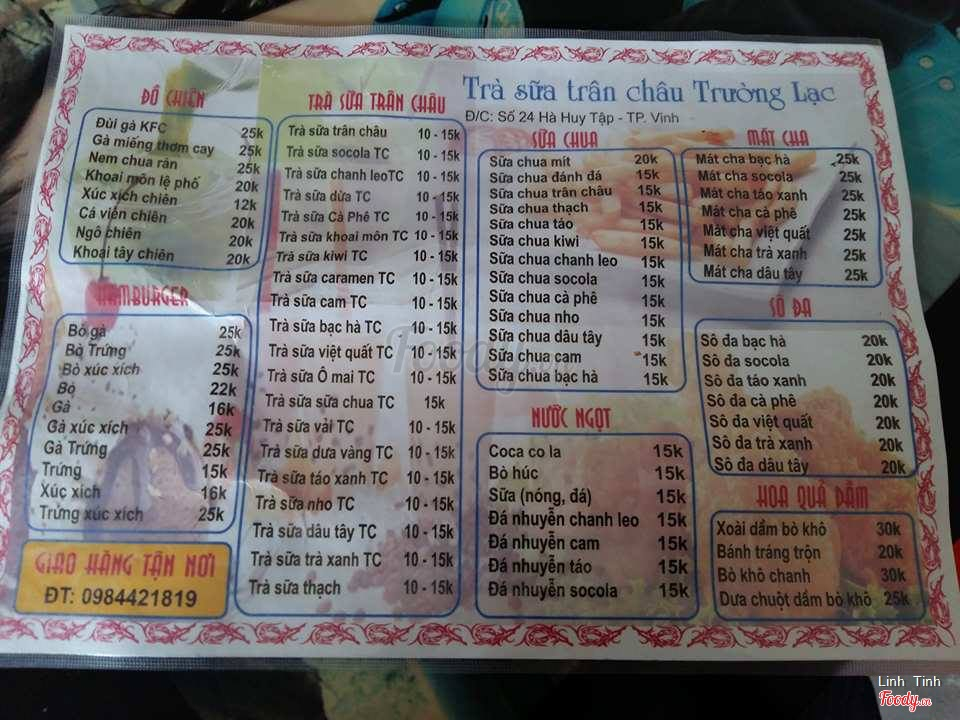 Trà sữa trân châu Trường Lạc
Đ/C: Số 24 Hà Huy Tập - TP. Vinh
ĐỒ CHIÊN
Đùi gà KFC 25k
Gà miếng thơm cay 25k
Nem chua rán 25k
Khoai môn lệ phố 20k
Xúc xích chiên 12k
Cá viên chiên 20k
Ngô chiên 20k
Khoai tây chiên 20k
HAMBURGER
Bò gà 25k
Bò Trứng 25k
Bò xúc xích 25k
Bò 22k
Gà 16k
Gà xúc xích 25k
Gà Trứng 25k
Trứng 15k
Xúc xích 16k
Trứng xúc xích 25k
GIAO HÀNG TẬN NƠI
ĐT: 0984421819
TRÀ SỮA TRÂN CHÂU
Trà sữa trân châu 10 - 15k
Trà sữa socola TC 10 - 15k
Trà sữa chanh leoTC 10 - 15k
Trà sữa dừa TC 10 - 15k
Trà sữa Cà Phê TC 10 - 15k
Trà sữa khoai môn TC 10 - 15k
Trà sữa kiwi TC 10 - 15k
Trà sữa caramen TC 10 - 15k
Trà sữa cam TC 10 - 15k
Trà sữa bạc hà TC 10 - 15k
Trà sữa việt quất TC 10 - 15k
Trà sữa Ô mai TC 10 - 15k
Trà sữa sữa chua TC 15k
Trà sữa vải TC 10 - 15k
Trà sữa dưa vàng TC 10 - 15k
Trà sữa táo xanh TC 10 - 15k
Trà sữa nho TC 10 - 15k
Trà sữa dâu tây TC 10 - 15k
Trà sữa trà xanh TC 10 - 15k
Trà sữa thạch 10 - 15k
SỮA CHUA
Sữa chua mít 20k
Sữa chua đánh đá 15k
Sữa chua trân châu 15k
Sữa chua thạch 15k
Sữa chua táo 15k
Sữa chua kiwi 15k
Sữa chua chanh leo 15k
Sữa chua socola 15k
Sữa chua cà phê 15k
Sữa chua nho 15k
Sữa chua dâu tây 15k
Sữa chua cam 15k
Sữa chua bạc hà 15k
NƯỚC NGỌT
Coca co la 15k
Bò húc 15k
Sữa (nóng, đá) 15k
Đá nhuyễn chanh leo 15k
Đá nhuyễn cam 15k
Đá nhuyễn táo 15k
Đá nhuyễn socola 15k
MÁT CHA
Mát cha bạc hà 25k
Mát cha socola 25k
Mát cha táo xanh 25k
Mát cha cà phê 25k
Mát cha việt quất 25k
Mát cha trà xanh 25k
Mát cha dâu tây 25k
SÔ ĐA
Sô đa bạc hà 20k
Sô đa socola 20k
Sô đa táo xanh 20k
Sô đa cà phê 20k
Sô đa việt quất 20k
Sô đa trà xanh 20k
Sô đa dâu tây 20k
HOA QUẢ DẦM
Xoài dầm bò khô 30k
Bánh tráng trộn 20k
Bò khô chanh 30k
Dưa chuột dầm bò khô 25k
Foody.vn
Linh Tinh
Foody.vn